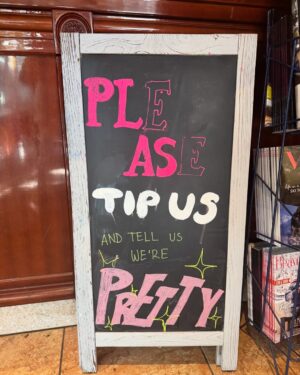 PLE
ASE
TIP US
AND TELL US
WE'RE
PRETTY